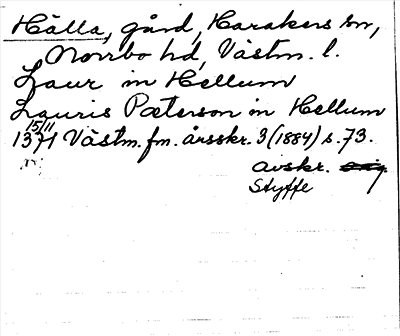 Hälla, gård, Harakers sn,
Norrbo hd, Västm. l.
Laur in Hellum
Lauris Pæterson in Hellum
15/11
1371 Västm. fm. årsskr. 3 (1884) s. 73.
avskr.
Styffe